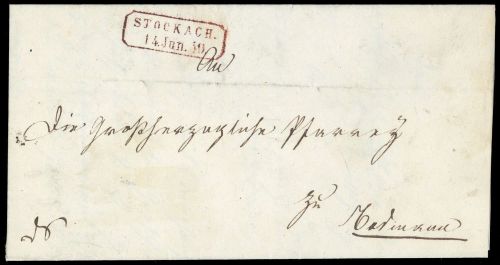 STOCKACH.
14. Jun. 50
An
Die Großherzogliche Pfarrey
zu
Bodmann